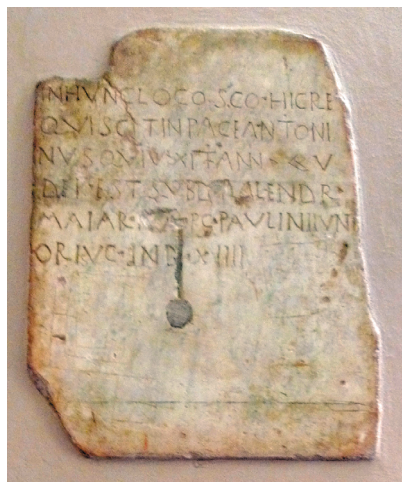 IN HVNC LOCO · SCO · HIC RE
QVISCIT IN PACE ANTONI
NVS QVI VIXIT ANN
DEP EST SVB D KALENDR ·
MAIAR · P C · PAVLINI IVN
ORIVC · IND · XIIII